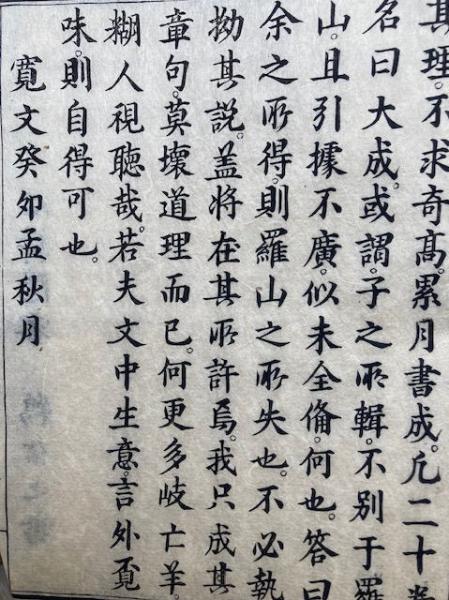 其理。不求奇高。累月書成。凡二十卷
名曰大成。或謂。子之所輯。不別于羅
山。且引據不廣。似未全偹。何也。答曰
余之所得。則羅山之所失也。不必執
拗其說。盖將在其所許焉。我只成其
章句。莫壞道理而已。何更多岐亡羊。
糊人視聽哉。若夫文中生意。言外覔
味。則自得可也。
寛文癸夘孟秋月